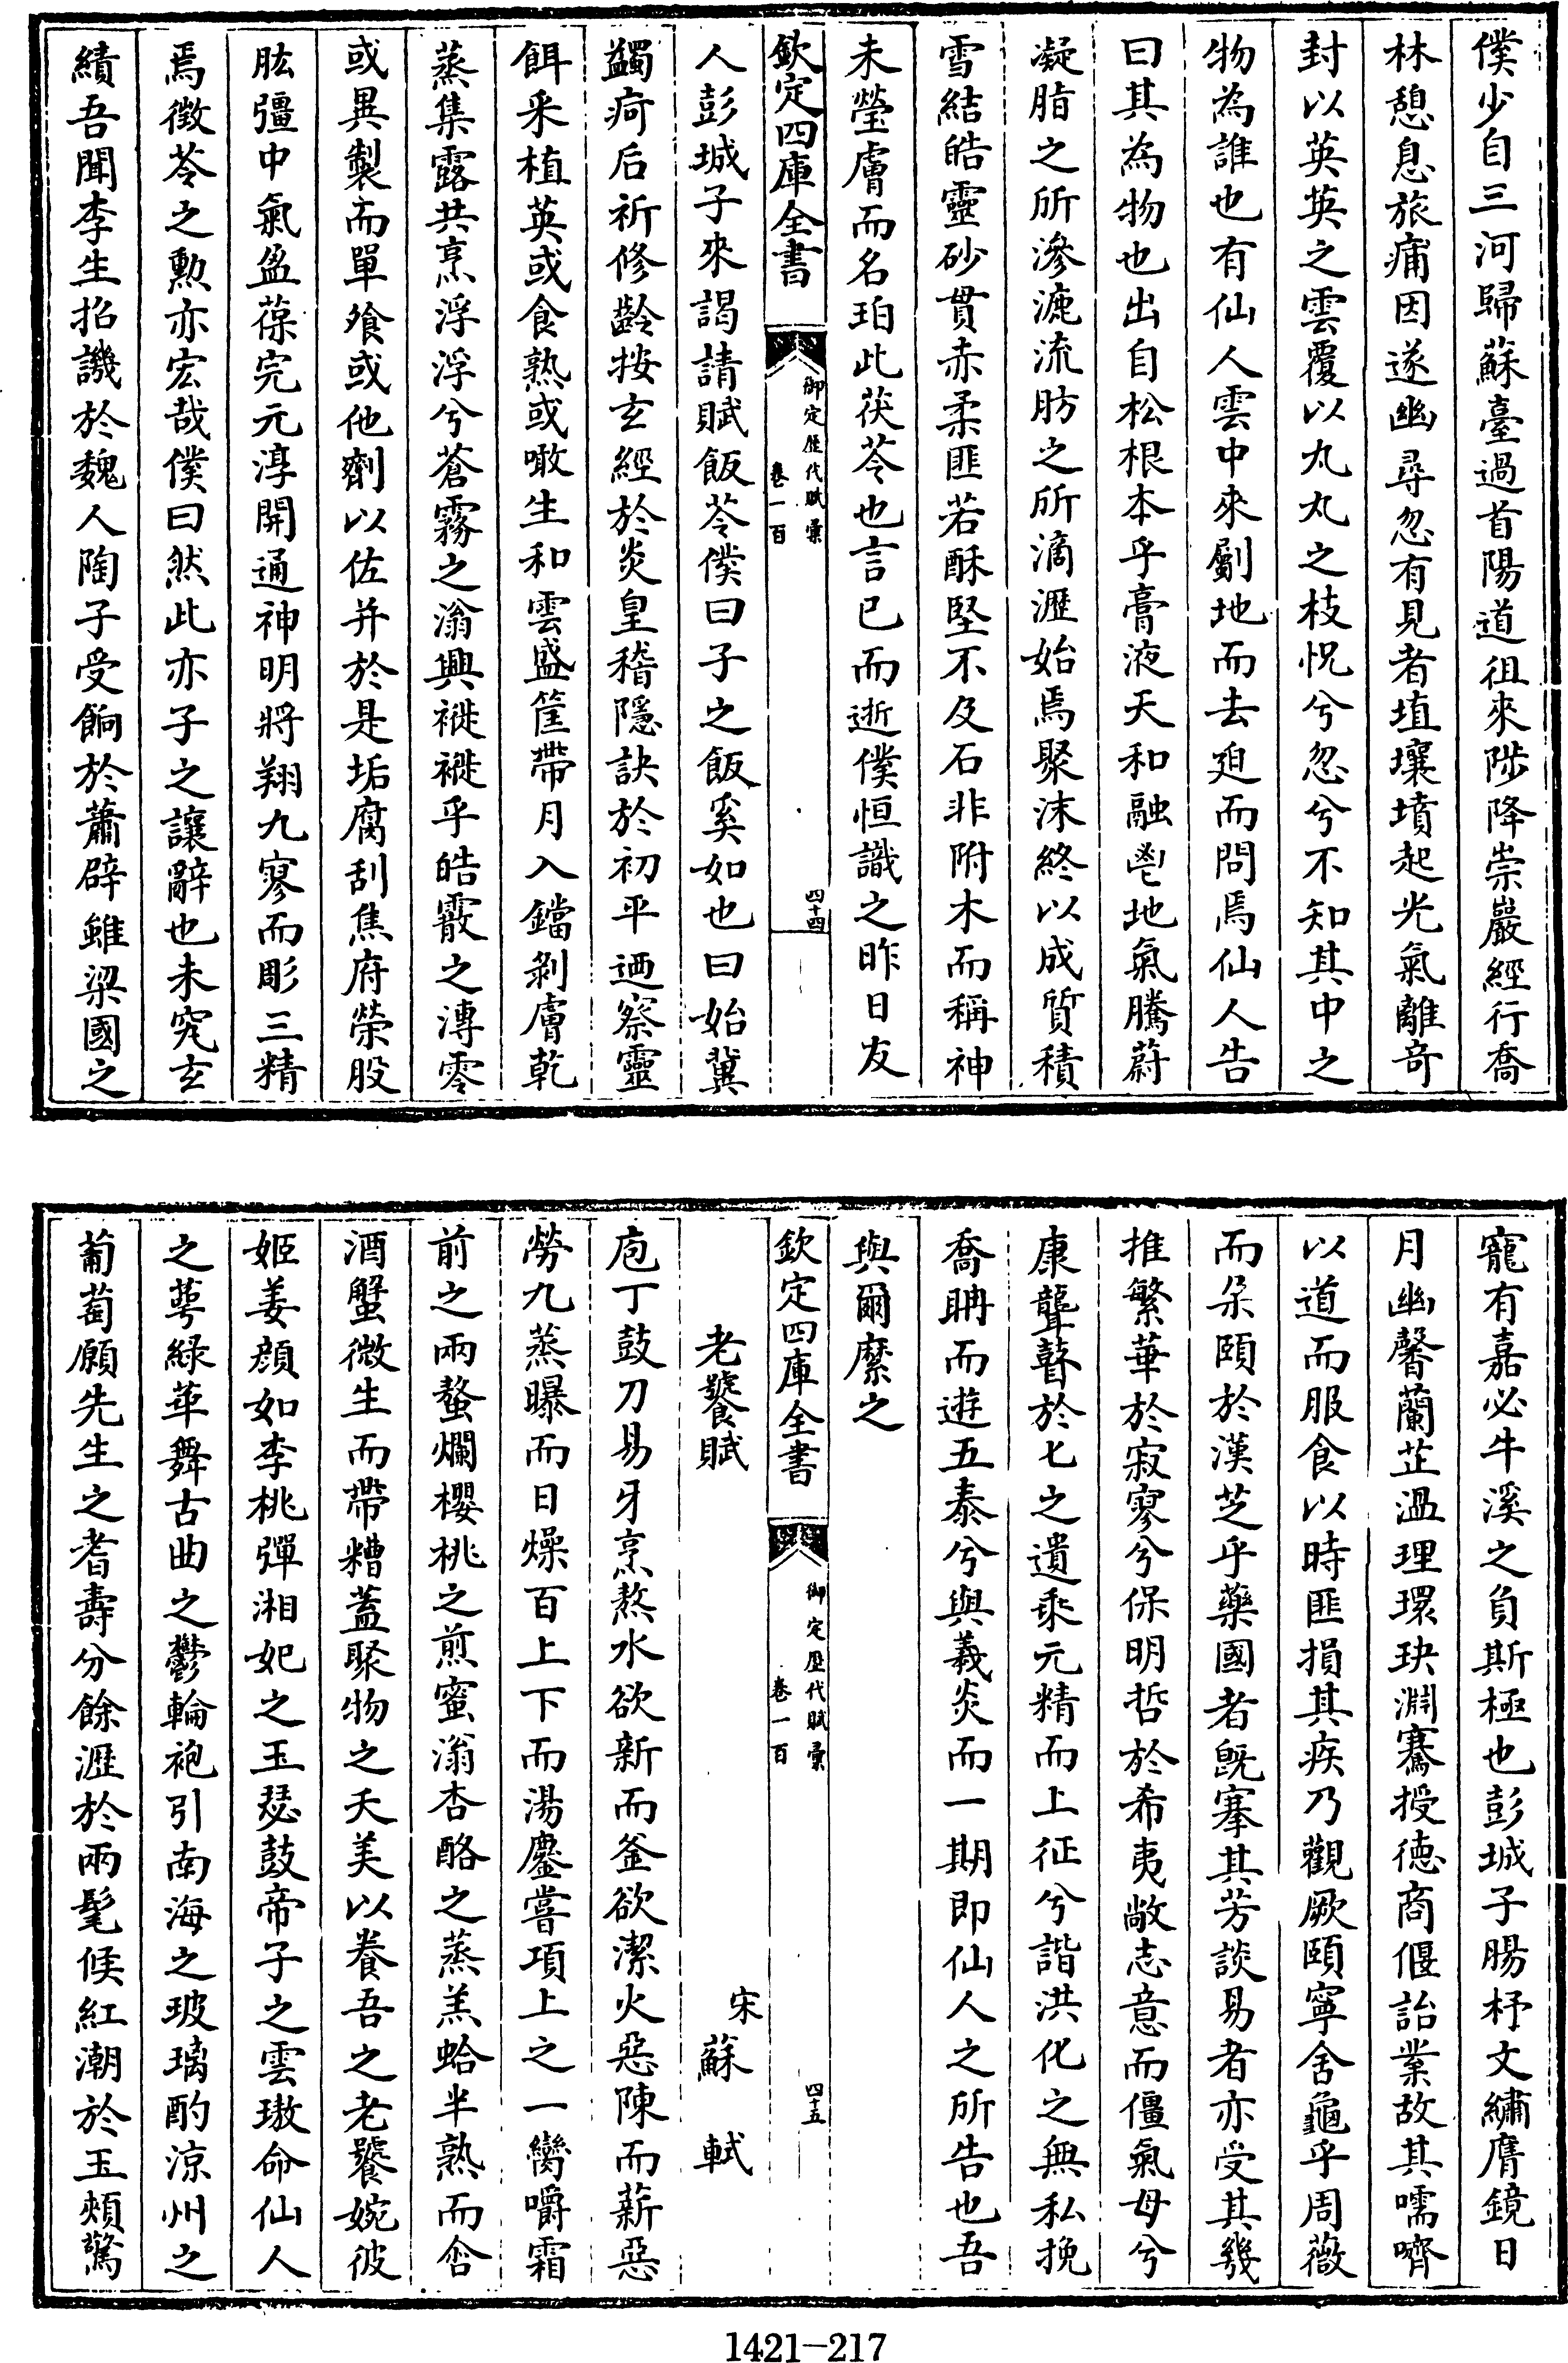 僕少自三河歸蘇臺過首陽道徂來陟降崇巖經行喬
林憩息旅痡因遂幽尋忽有見者埴壤墳起光氣離奇
封以英英之雲覆以九丸之枝怳兮忽兮不知其中之
物為誰也有仙人雲中來劚地而去廹而問焉仙人告
曰其為物也出自松根本乎膏液天和融鬯地氣騰蔚
凝脂之所滲漉流肪之所滴瀝始焉聚沫終以成質積
雪結皓靈砂貫赤柔匪若酥堅不及石非附木而稱神
未瑩膚而名珀此茯苓也言已而逝僕恒識之昨日友
欽定四庫全書
御定歷代賦彙
卷一百
四十四
人彭城子來謁請賦飯苓僕曰子之飯奚如也曰始冀
蠲疴后祈修齡按玄經於炎皇稽隱訣於初平迺察靈
餌采植英或食熟或噉生和雲盛筐帶月入鐺剝膚乾
蒸集露共烹浮浮兮蒼霧之滃興褷褷乎皓霰之漙零
或異製而單飧或他劑以佐并於是垢腐刮焦府榮股
肱彊中氣盈葆完元淳開通神明將翔九寥而彫三精
焉徵苓之勲亦宏哉僕曰然此亦子之讓辭也未究玄
績吾聞李生招譏於魏人陶子受餉於蕭辟雖梁國之
寵有嘉必牛溪之負斯極也彭城子腸杼文繡膺鏡日
月幽馨蘭芷溫理環玦淵騫授德商偃詒業故其嚅嚌
以道而服食以時匪損其疾乃觀厥頤寧舍龜乎周薇
而朵頤於漢芝乎藥國者旣搴其芳談易者亦受其幾
推繁華於寂寥兮保明哲於希夷敞志意而僵氣母兮
康聾瞽於七之遺乘元精而上征兮諧洪化之無私挽
喬聃而遊五泰兮與羲炎而一期即仙人之所告也吾
與爾縻之
欽定四庫全書
御定歷代賦彙
卷一百
四十五
老饕賦
宋 蘇 軾
庖丁鼓刀易牙烹熬水欲新而釜欲潔火惡陳而薪惡
勞九蒸曝而日燥百上下而湯鏖嘗項上之一臠嚼霜
前之兩螯爛櫻桃之煎蜜滃杏酪之蒸羔蛤半熟而含
酒蟹微生而帶糟蓋聚物之夭美以養吾之老饕婉彼
姬姜顔如李桃彈湘妃之玉瑟鼓帝子之雲璈命仙人
之萼綠華舞古曲之鬱輪袍引南海之玻瓈酌涼州之
葡萄願先生之耆壽分餘瀝於兩髦候紅潮於玉頰驚
1421-217